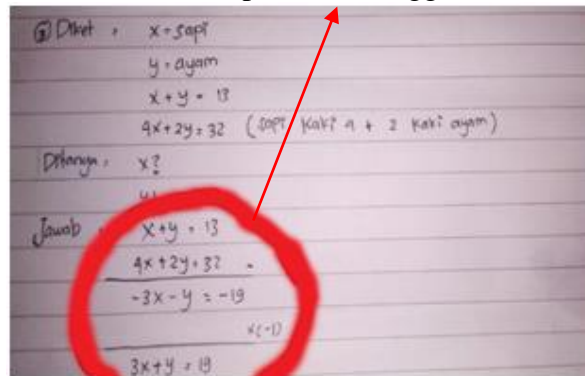 ② Diket : x = sapi
y = ayam
x + y = 13
4x + 2y = 32 (sapi kaki 4 + 2 kaki ayam)
Ditanya : x?
Jawab : x + y = 13
4x + 2y = 32 -
-3x - y = -19
x(-1)
3x + y = 19